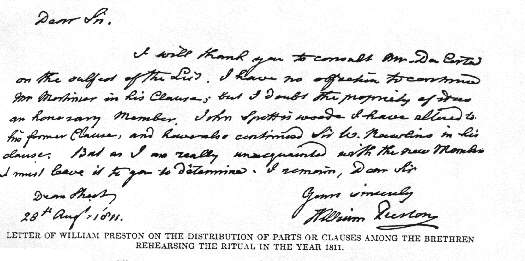 Dear Sir.
I will thank you to consult Mr. Da Costa
on the subject of the List. I have no objection to continue
Mr Mortimer in his Clause; but I doubt the propriety of
an honorary Member. John Spottiswoode I have altered to
his former Clause, and have also continued Sir W. Rawlins in his
clause. But as I am really unacquainted with the new Members
I must leave it to you to determine. I remain, Dear Sir
Dean Street Yours sincerely
28th Augt. 1811. William Preston
LETTER OF WILLIAM PRESTON ON THE DISTRIBUTION OF PARTS OR CLAUSES AMONG THE BRETHREN
REHEARSING THE RITUAL IN THE YEAR 1811.